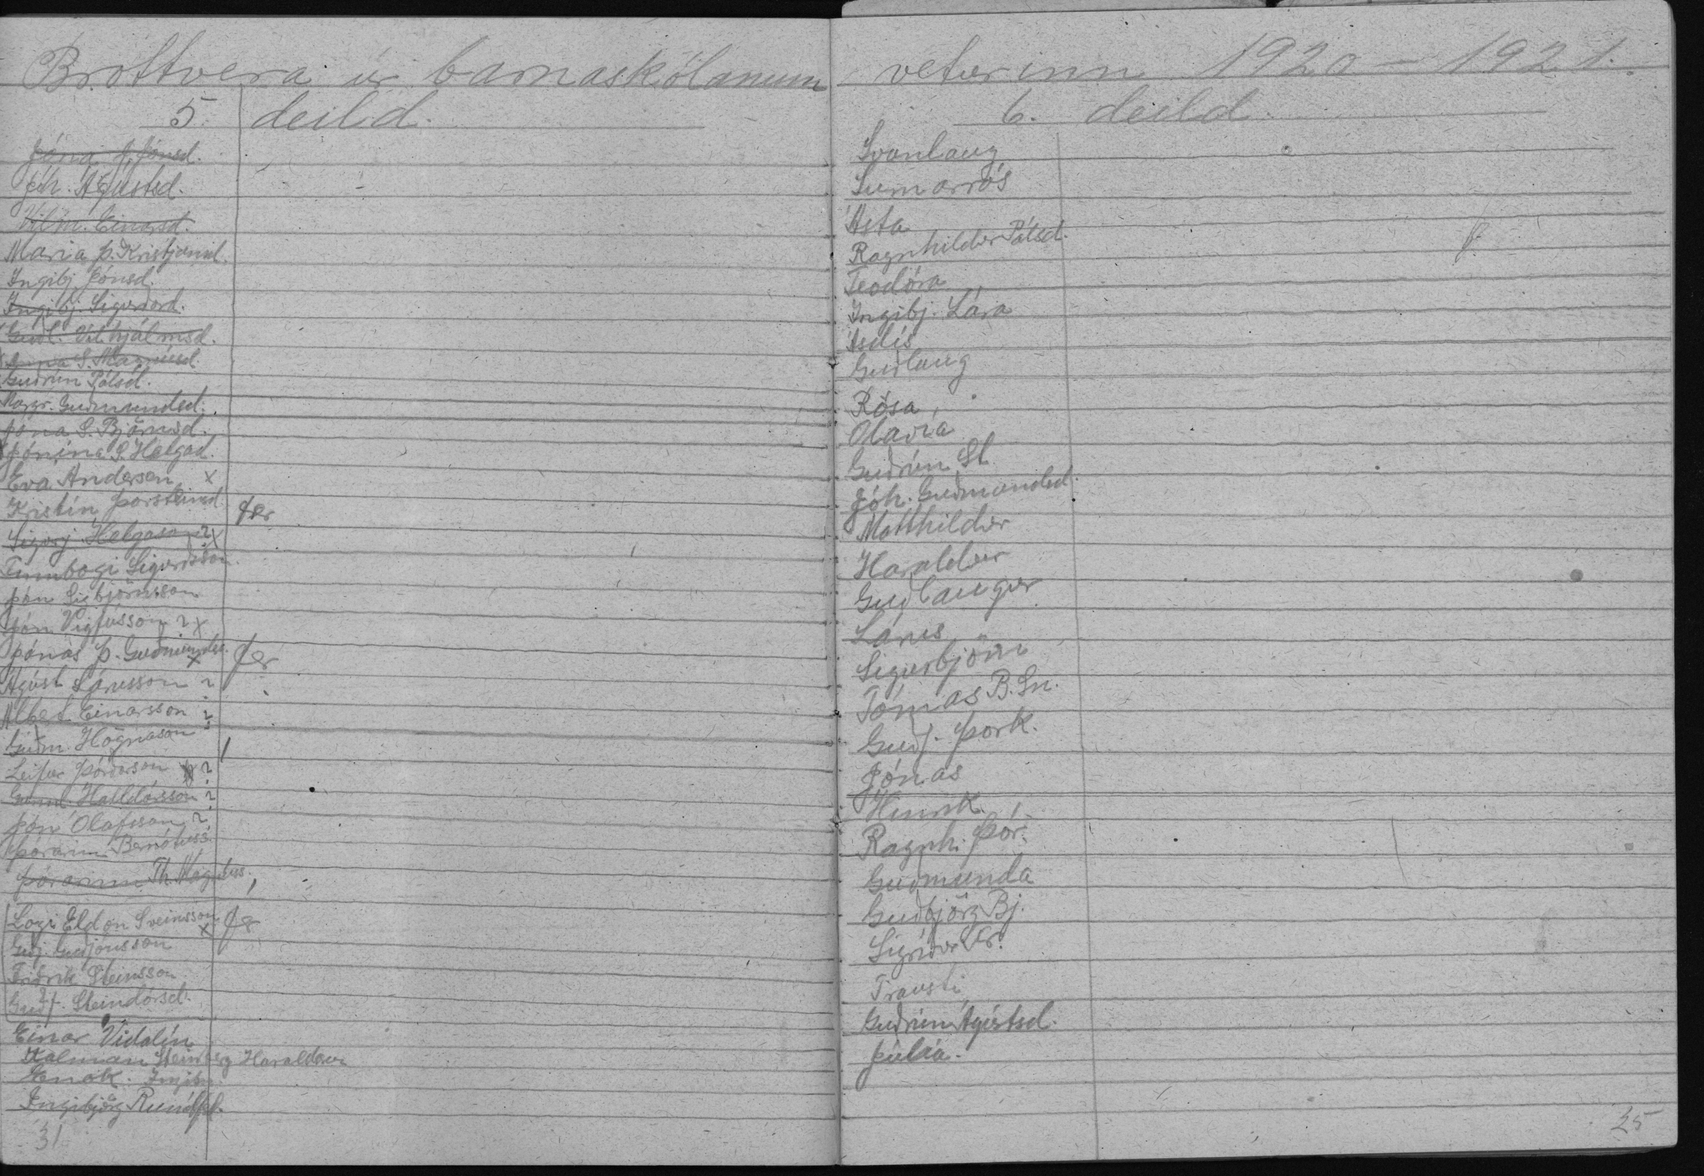 Brottvera úr barnaskólanum
5. deild.
Jóna Á. Jónsd.
Jóh. Ágústsd.
Vilm. Einarsd.
María Þ. Kristjánsd.
Ingibj. Jónsd.
Ingibj. Sigurðard.
Guðl. Vilhjálmsd.
Anna S. Magnúsd.
Guðrún Pálsd.
Margr. Guðmundsd.
Jóna S. Björnsd.
Jónína G. Helgad.
Eva Anderson x
Kristín Þorsteinsd. fer
Sigurj. Helgason ? x
Finnbogi Sigurðsson
Jón Sigbjörnsson
Jón Vigfússon ? x
Jónas Þ. Guðmundss. x fer
Ágúst Lárusson ?
Albert Einarsson ?
Guðm. Högnason
Leifur Þórðarson ?
Halldórsson ?
Jón Ólafsson ?
Þórarinn Bernótuss.
Þórarinn Th. Magnúss.
Logi Eldon Sveinsson x fer
Guðj. Guðjónsson
Friðrik Steinsson
Guðf. Steindórsd.
Einar Vidalín
Kalman Steinberg Haraldsson
Enok. Ingib.
Ingibjörg Runólfsd.
31
veturinn 1920 – 1921.
6. deild
Svanlaug
Sumarrós
Ásta
Ragnhildur Pálsd. f.
Teodóra
Ingibj. Lára
Ásdís
Guðlaug
Rósa
Ólavía
Guðrún St.
Jóh. Guðmundsd.
Matthildur
Haraldur
Guðlaugur
Lárus
Sigurbjörn
Tómas B. Sn.
Guðj. Þork.
Jónas
Hinrik
Ragnh. Þór.
Guðmunda
Guðbjörg Bj.
Sigríður Kr.
Trausti
Guðrún Ágústsd.
Júlía.
25